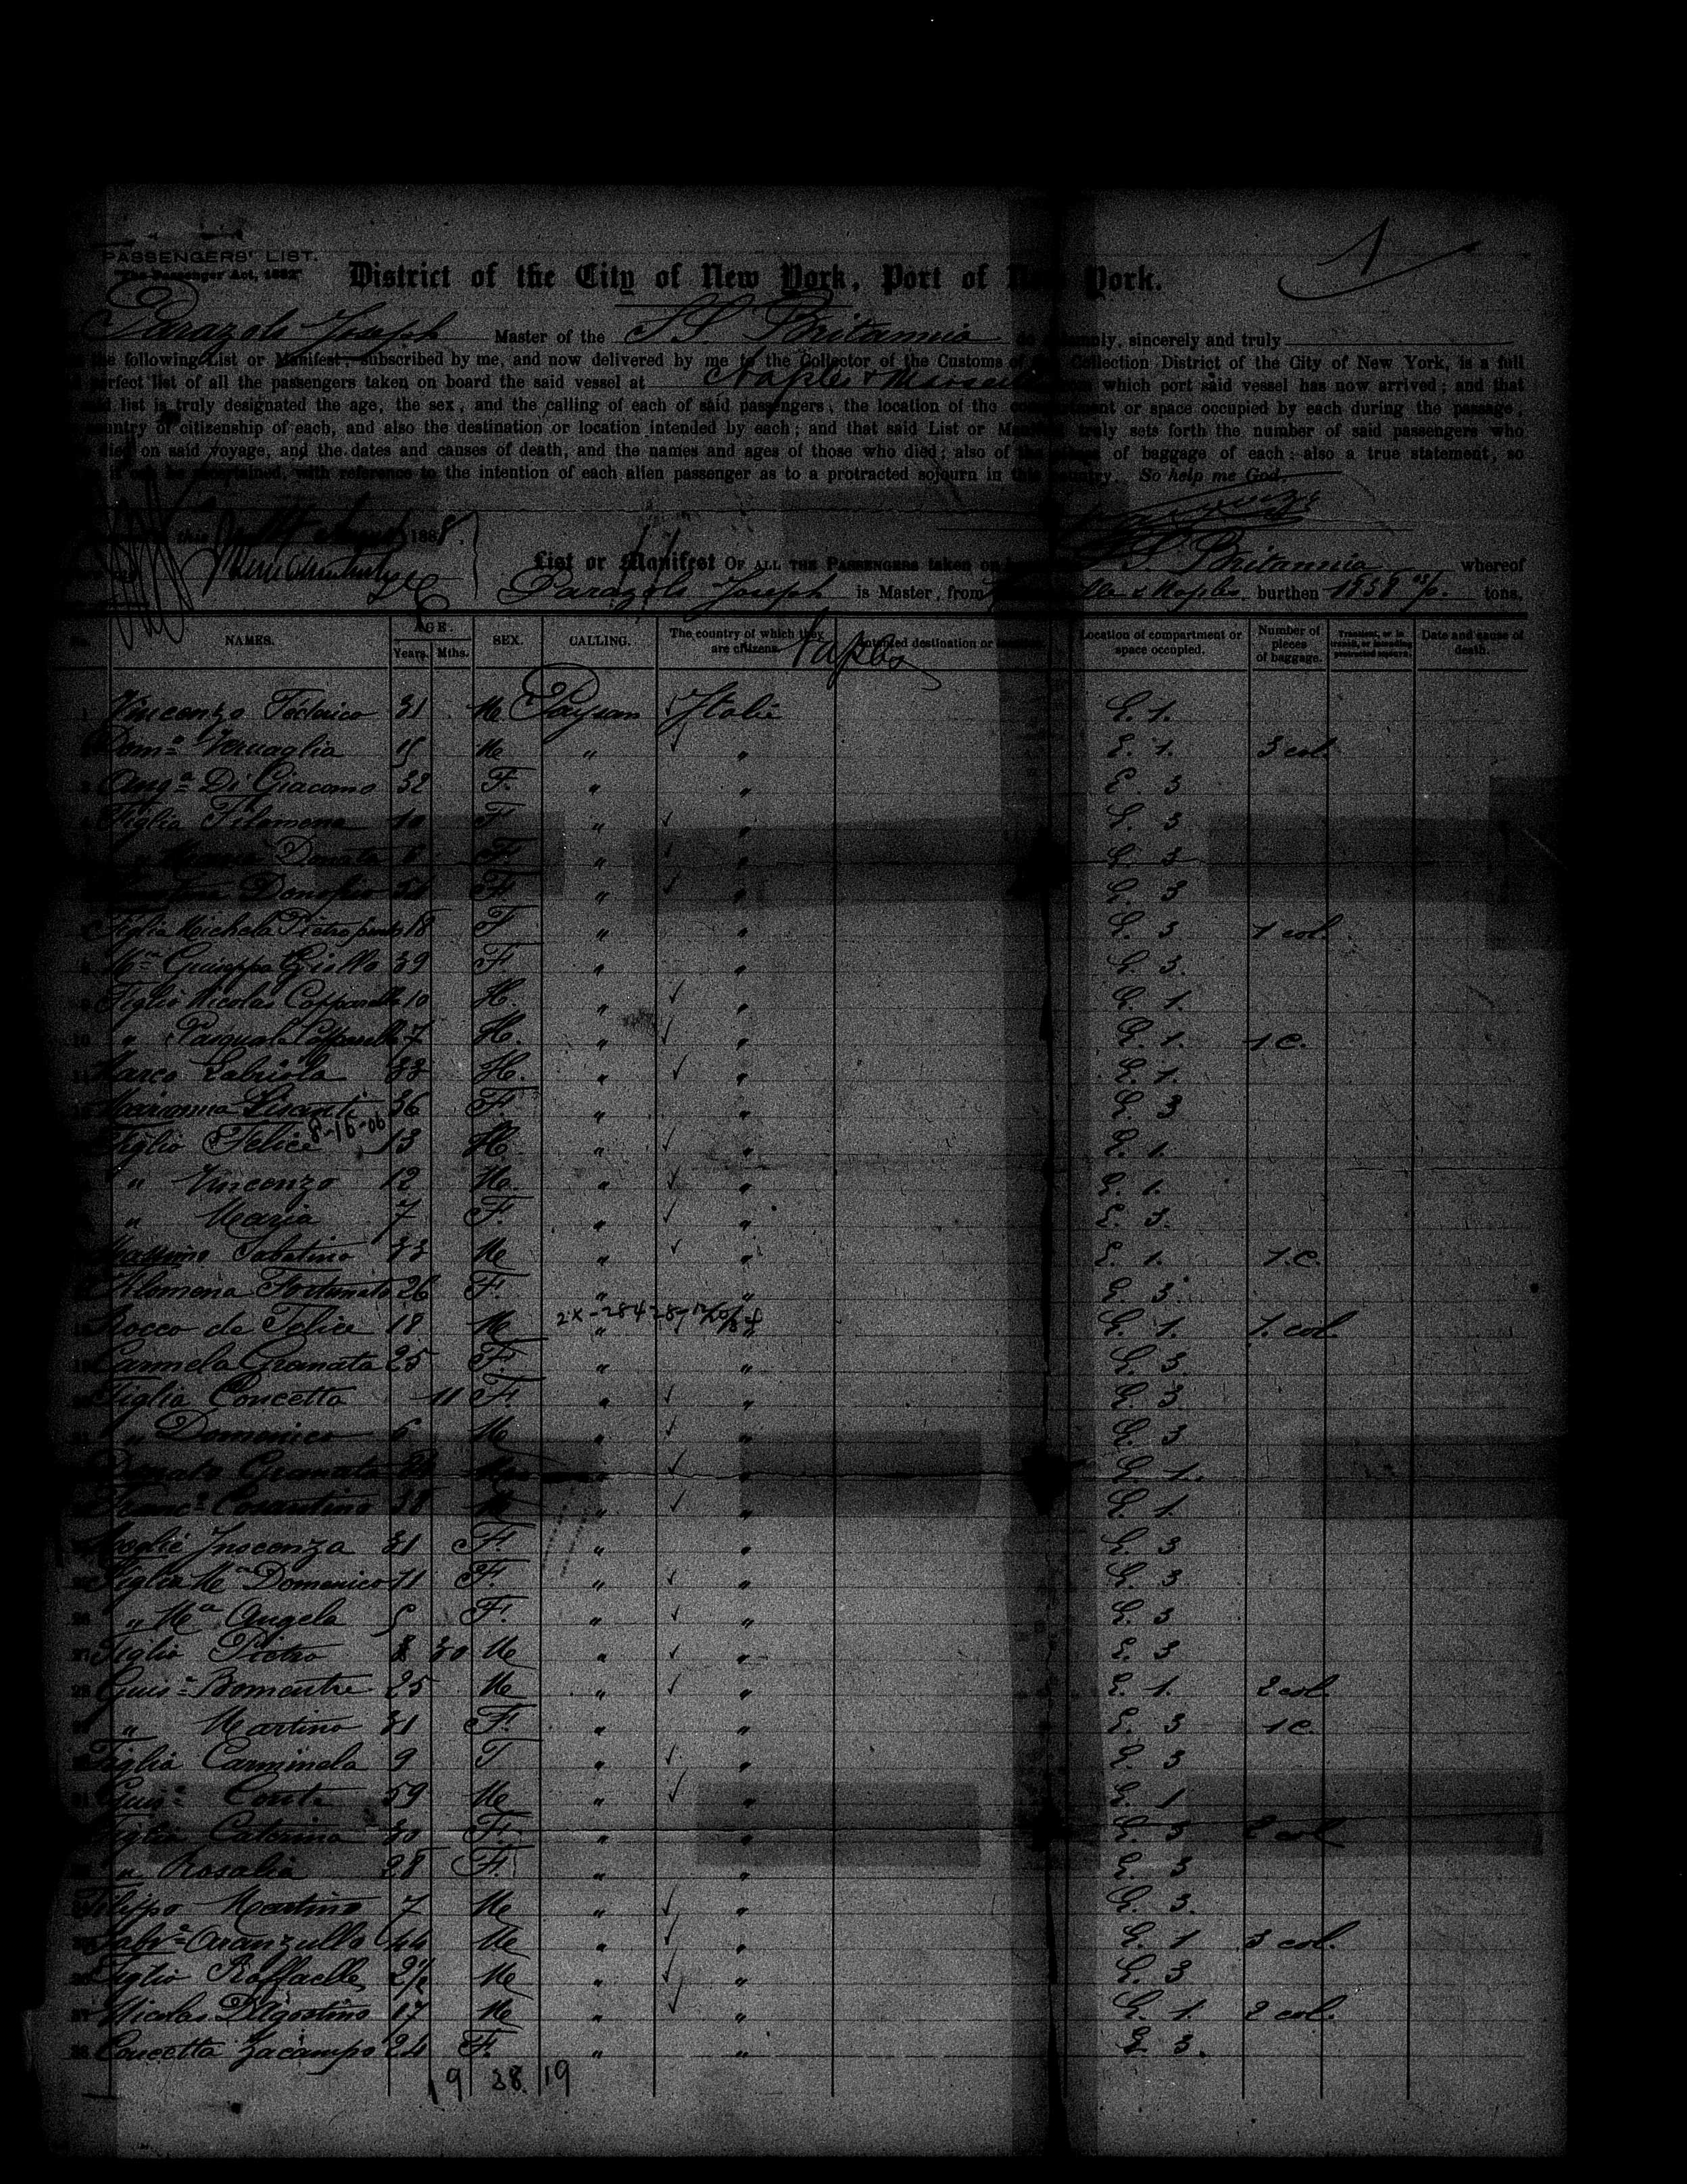 PASSENGERS' LIST.
"The Passenger Act, 1882"
1
District of the City of New York, Port of New York.
Parazols Joseph Master of the S.S. Britannia do solemnly, sincerely and truly
the following List or Manifest, subscribed by me, and now delivered by me to the Collector of the Customs of the Collection District of the City of New York, is a full
perfect list of all the passengers taken on board the said vessel at Naples & Marseille from which port said vessel has now arrived; and that
said list is truly designated the age, the sex, and the calling of each of said passengers, the location of the compartment or space occupied by each during the passage,
country of citizenship of each, and also the destination or location intended by each; and that said List or Manifest truly sets forth the number of said passengers who
died on said voyage, and the dates and causes of death, and the names and ages of those who died; also of the pieces of baggage of each: also a true statement, so
it can be ascertained, with reference to the intention of each alien passenger as to a protracted sojourn in this country. So help me God.
this 188
List or Manifest OF ALL THE PASSENGERS taken on S.S. Britannia whereof
Parazols Joseph is Master, from Marseille & Naples burthen tons.
NAMES. AGE. Years. Mths. SEX. CALLING. The country of which they are citizens. Intended destination or Location of compartment or space occupied. Number of pieces of baggage. Transient, or in transit, or intending protracted sojourn. Date and cause of death.
Naples
Vincenzo Federico 31 M Paysan ✓ Italie E. 1.
Dom.a Vernaglia 15 M " ✓ " E. 1. 3 col.
Ang.a Di Giacomo 32 F. " " E. 3
Figlia Filomena 10 F " ✓ " E. 3
" Maria Donata 6 F. " ✓ " E. 3
Donofrio F " ✓ " E. 3
Figlia Michela 18 F " " E. 3 1 col.
M.a Giuseppa Giallo 39 F " " E. 3.
Figlio Nicolas Capparella 10 H. " ✓ " E. 1.
10 " Pasquale Capparella 7 H. " ✓ " E. 1. 1 c.
11 Marco Labriola 33 H. " ✓ " E. 1.
Marianna Lisanti 36 F. " " E. 3
8-16-06
Figlio Felice 13 H. " ✓ " E. 1.
" Vincenzo 12 M. " ✓ " E. 1.
" Maria 7 F. " ✓ " E. 3.
Massimo Sabatino 33 M " ✓ " E. 1. 1. c.
Filomena Fortunato 26 F. " " E. 3.
Rocco de Felice 18 M " " E. 1. 1. col.
Carmela Granata 25 F. " " E. 3.
Figlia Concetta 11 F. " ✓ " E. 3.
" Domenico 6 M " ✓ " E. 3
Donato Granata " ✓ " E. 1.
Franc.o Cosentino 38 M " ✓ " E. 1.
Moglie Inocenza 31 F. " " E. 3
Figlia M.a Domenico 11 F. " ✓ " E. 3
" M.a Angela 5 F. " ✓ " E. 3
27 Figlio Pietro M " ✓ " E. 3
28 Guis.e Bomentre 25 M " ✓ " E. 1. 2 col.
" Martino 31 F. " " E. 3 1 c.
Figlia Carminela 9 F " ✓ " E. 3
31 Guis.e Conte 59 M " ✓ " E. 1
Figlia Caterina 30 F. " " E. 3 2 col
" Rosalia 28 F. " " E. 3
Filippo Martino 7 M " ✓ " E. 3.
Salv.e Aranzullo 44 M " ✓ " E. 1 3 col.
Figlio Raffaelle 2½ M " ✓ " E. 3
37 Nicolas D'Agostino 17 M " ✓ " E. 1. 2 col.
38 Concetta Jacampo 24 F. " " E 3.
19 38. 19